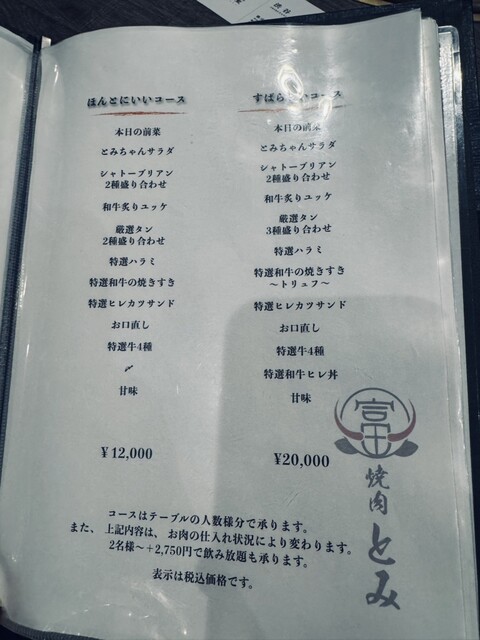 ほんとにいいコース
本日の前菜
とみちゃんサラダ
シャトーブリアン
2種盛り合わせ
和牛炙りユッケ
厳選タン
2種盛り合わせ
特選ハラミ
特選和牛の焼きすき
特選ヒレカツサンド
お口直し
特選牛4種
〆
甘味
¥12,000
すばらしいコース
本日の前菜
とみちゃんサラダ
シャトーブリアン
2種盛り合わせ
和牛炙りユッケ
厳選タン
3種盛り合わせ
特選ハラミ
特選和牛の焼きすき
〜トリュフ〜
特選ヒレカツサンド
お口直し
特選牛4種
特選和牛ヒレ丼
甘味
¥20,000
コースはテーブルの人数様分で承ります。
また、上記内容は、お肉の仕入れ状況により変わります。
2名様〜+2,750円で飲み放題も承ります。
表示は税込価格です。
富
焼肉 とみ